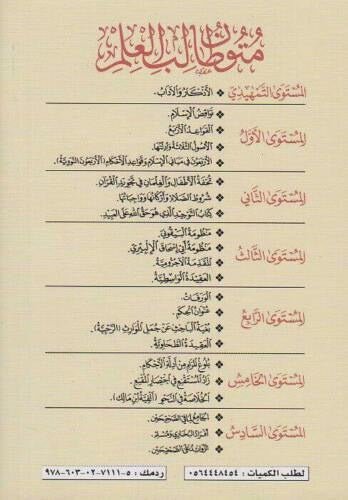 متون طالب العلم
المستوى التمهيدي
❖ الأذكار والآداب.
المستوى الأول
❖ نواقض الإسلام.
❖ القواعد الأربع.
❖ الأصول الثلاثة وأدلتها.
❖ الأربعون في مباني الإسلام وقواعد الأحكام (الأربعون النووية).
المستوى الثاني
❖ تحفة الأطفال والغلمان في تجويد القرآن.
❖ شروط الصلاة وأركانها وواجباتها.
❖ كتاب التوحيد الذي هو حق الله على العبيد.
المستوى الثالث
❖ منظومة البيقوني.
❖ منظومة أبي إسحاق الإلبيري.
❖ المقدمة الآجرومية.
❖ العقيدة الواسطية.
المستوى الرابع
❖ الورقات.
❖ عنوان الحكم.
❖ بغية الباحث عن جمل الموارث (الرحبية).
❖ العقيدة الطحاوية.
المستوى الخامس
❖ بلوغ المرام من أدلة الأحكام.
❖ زاد المستقنع في اختصار المقنع.
❖ الخلاصة في النحو (ألفية ابن مالك).
المستوى السادس
❖ الجامع لما في الصحيحين.
❖ أفراد البخاري ومسلم.
❖ الزوائد على الصحيحين
لطلب الكميات : ٠٥٦٤٤٤٨٤٥٤
ردمك : ٥-٧١١١-٠٢-٦٠٣-٩٧٨